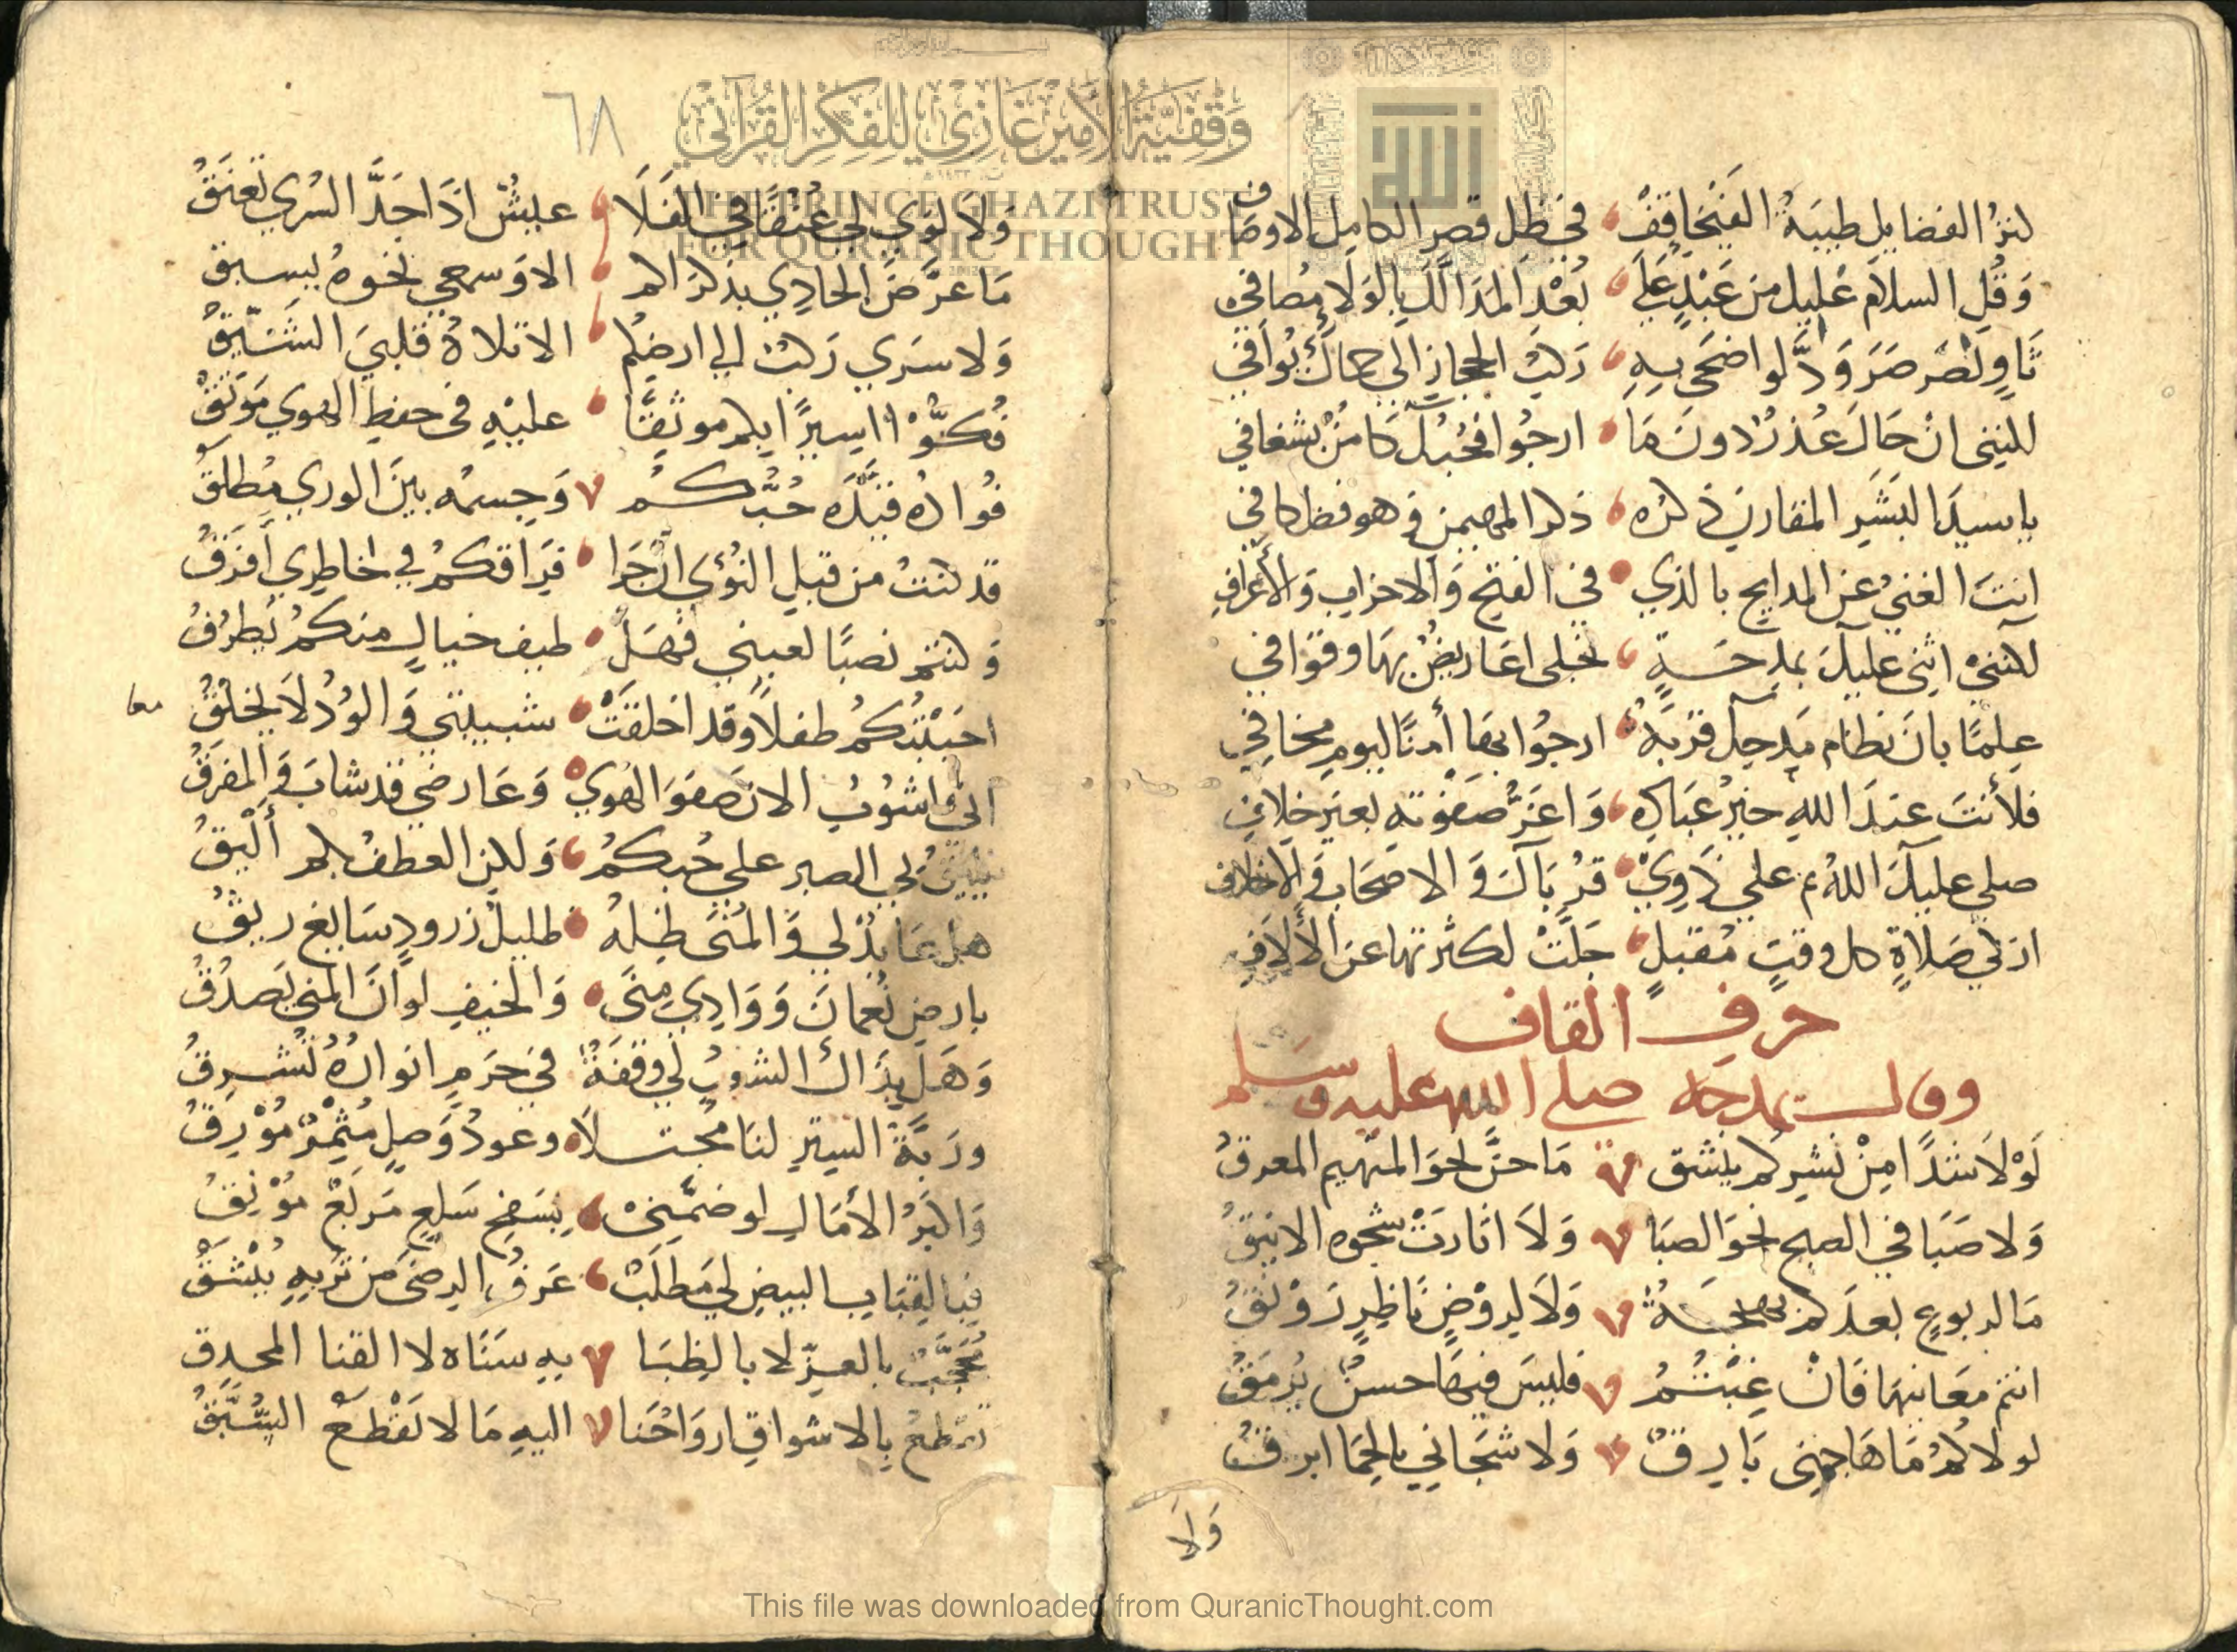 كنز الفضايل طيبة الفيحا قف في ظل قصر الكامل الاوصاف
وَقُلِ السلام عليك من عَبْدٍ عَلَى بُعْدِ المَدَا لَكَ بِالوَلَا مصافي
ثَاوٍ بصَرصَرَ وَدَّ لو اضحى بِهِ رَكْبُ الحجاز الى حماك يُوَافي
لكنني ان حَالَ عُذرٌ دونَ مَا ارجُوا فحُبكَ كامنٌ بشغافي
يا سيدَ البَشَرِ المقارن ذكرُه ذكر المهيمن وهو فضل كافي
انتَ الغنيُّ عن المدايح بالذي في الفتح وَالاحزاب وَالأعرافِ
لكننيْ اثني عليكَ بمدحَةٍ تُجلى اعَاريضٌ بهَا وقوَافي
عِلمًا بانَ نظام مَدحِكَ قربَةٌ ارجُوا بهَا أمنًا ليوم مخافي
فلأنتَ عندَ اللهِ خيرُ عبَادِه وَاعَزُّ صَفوَتهِ بغير خلافِ
صلى عليكَ اللهُ ثم على ذَوِيْ قُرْبَاكَ وَالاصحَاب وَالاخلاف
ازكى صَلاةٍ كل وقتٍ مُقبلٍ جَلَّتْ لكثرتها عن الألاَفِ
حرف القاف
وقال يمدحه صلى الله عليه وسلم
لَوْلاَ شذًا مِنْ نَشرِكم ينشق مَا حنَّ نحوَ المتهم المعرقُ
وَلا صَبَا في الصبح نحوَ الصبَا وَلاَ اثارَتْ شجوه الاينقُ
مَا لربوعٍ بعدَكم بهجَةٌ وَلاَ لِروْضٍ نَاظِرٍ رَوْنقُ
انتم معَانيهَا فَانْ غِبْتُمُ فليسَ فيهَا حسنٌ يُرمَقُ
لولاكُمُ مَا هَاجني بَارقٌ وَلا شجَاني بالحِمَا ابرقُ
وَلاَ
٦٨
وَلاَ لوَى لي عُنقًا في الفَلَا عيشٌ اذَا جَدَّ السُرى تعنَقُ
مَا عرَّضَ الحَادِي بذكرَاكم الا وَسمعي نحوَهُ يسبق
وَلا سَرَى رَكبٌ الى ارضكم الا تلاهُ قلبيَ الشَيِّقُ
فُكوُّا اسيرًا بكم موثقًا عليْهِ في حفظِ الهوى مَوثقُ
فُوادُه قَيَّدَه حُبُّكُمْ وَجسمُه بينَ الورى مُطلقُ
قد كنتُ من قبلِ النوَى ان جَرَا فِرَاقكمُ في خاطِري أَفرَقُ
وَكنتم نصبًا لعيني فهَل طيف خيالٍ منكمُ يَطرُقُ
احبَبْتُكمُ طفلًا وَقد اخلقَتْ شبيبتي وَالوُدُّ لاَ يخلُقُ
معا
انَّى اشوُبُ الان صَفوَ الهوَيْ وَعَارضي قد شابَ وَالمفرَقُ
يليقُ بي الصبر على حُبكمُ وَلكن العطفُ بكم ألْيَقُ
هل عَايدٌ لي وَالمُنَى ظِلهُ ظليل زرودٍ سَابغ ريقُ
بارض نُعمانَ وَوَادي مِنًى وَالخيفِ لو أنَّ المنى تَصدُقُ
وَهَل بِذَاكَ الشِعْبِ لي وقفَةٌ في حَرَمٍ انوارُهُ تُشرِقُ
وربَّةُ السترِ لنَا مُجتلاَه وعودُ وَصلٍ مُثمِرٌ مُوْرِقُ
وَابَرْدُ الأمَالِ لو ضمَّنيْ بسَفحِ سَلعٍ مَربَعٌ مُوْنِقُ
فبالقِبَابِ البيضِ لي مَطلَبٌ عَرفُ الرضى من تُربِهِ يُنْشَقُ
مُحَجَّبٌ بالعِزّ لا بالظبَا بِهِ سَنَاه لا القنا المحدِق
تقطعُ بِالاشواق ارْوَاحُنا اليهِ مَا لا تَقْطَعُ السُبَّقُ
وقفية الأمير غازي للفكر القرآني
THE PRINCE GHAZI TRUST
FOR QURANIC THOUGHT
This file was downloaded from QuranicThought.com